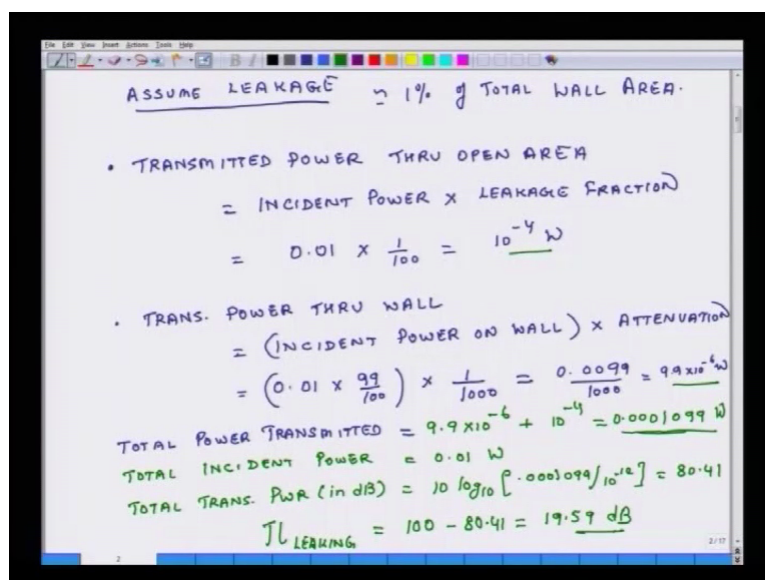 File Edit View Insert Actions Tools Help
ASSUME LEAKAGE ≃ 1% of TOTAL WALL AREA.
• TRANSMITTED POWER THRU OPEN AREA
= INCIDENT POWER × LEAKAGE FRACTION
= 0.01 × 1/100 = 10⁻⁴ W
• TRANS. POWER THRU WALL
= (INCIDENT POWER ON WALL) × ATTENUATION
= (0.01 × 99/100) × 1/1000 = 0.0099/1000 = 9.9×10⁻⁶ W
TOTAL POWER TRANSMITTED = 9.9×10⁻⁶ + 10⁻⁴ = 0.0001099 W
TOTAL INCIDENT POWER = 0.01 W
TOTAL TRANS. PWR (in dB) = 10 log₁₀ [.0001099/10⁻¹²] = 80.41
TL LEAKING = 100 - 80.41 = 19.59 dB
2/17
2